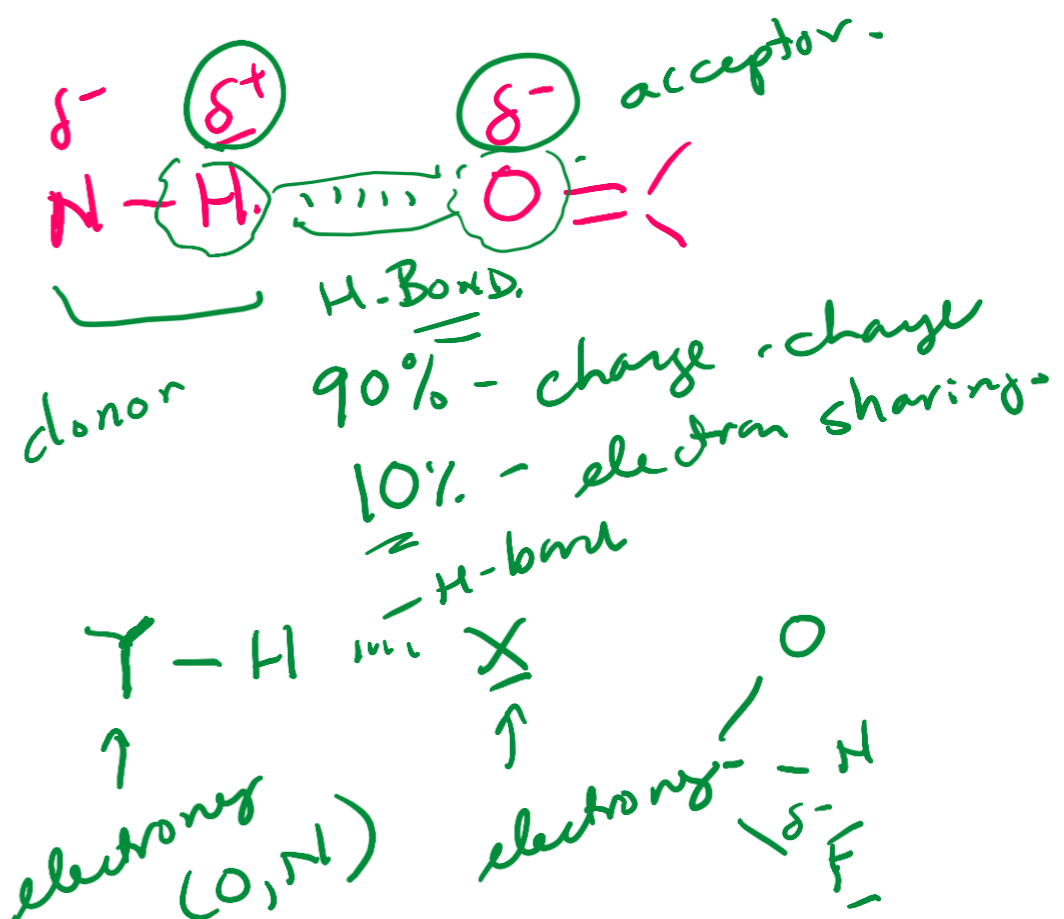 δ- δ+ δ- acceptor.
N - H. ''''' O =
H-BonD.
donor
90% - charge - charge
10% - electron sharing.
- H-bond
Y - H '''' X
O
- N
δ-
F
electroneg electroneg
(O, N)